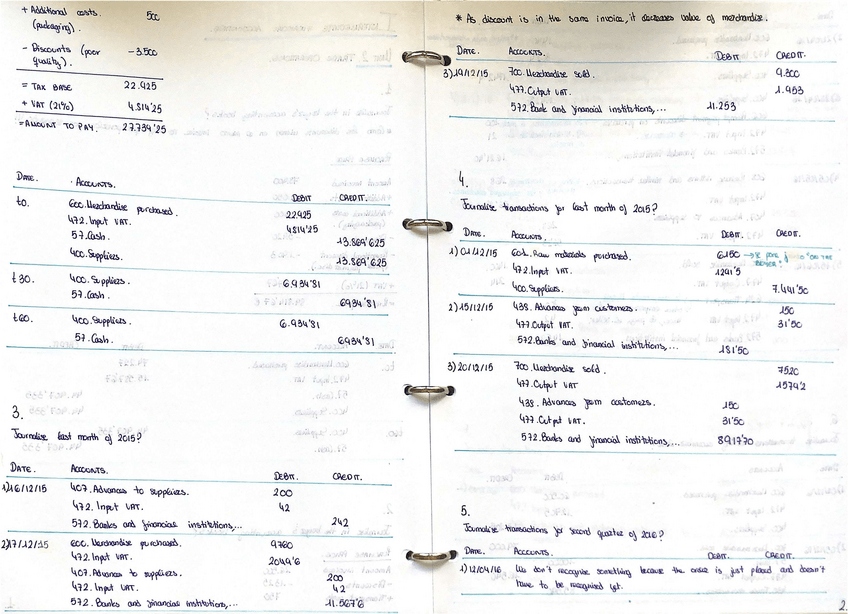 + Additional costs. 500
(packaging).
- Discounts (poor -3.500
quality).
= TAX BASE 22.925
+ VAT (21%) 4.814'25
= AMOUNT TO PAY. 27.739'25
DATE. ACCOUNTS. DEBIT CREDIT.
t0. 600. Merchandise purchased. 22925
472. Input VAT. 4814'25
57. Cash. 13.869'625
400. Suppliers. 13.869'625
t30. 400. Suppliers. 6.934'81
57. Cash. 6934'81
t60. 400. Suppliers. 6.934'81
57. Cash. 6934'81
3.
Journalise last month of 2015?
DATE. ACCOUNTS. DEBIT. CREDIT.
1) 16/12/15 407. Advances to suppliers. 200
472. Input VAT. 42
572. Banks and financial institutions,... 242
2) 17/12/15 600. Merchandise purchased. 9760
472. Input VAT. 2049'6
407. Advances to suppliers. 200
472. Input VAT. 42
572. Banks and financial institutions,... 11.567'6
* As discount is in the same invoice, it decreases value of merchandise.
DATE. ACCOUNTS. DEBIT CREDIT.
3) 19/12/15 700. Merchandise sold. 9.300
477. Output VAT. 1.953
572. Bank and financial institutions,... 11.253
4.
Journalise transactions for last month of 2015?
DATE. ACCOUNTS. DEBIT. CREDIT.
1) 01/12/15 601. Raw materials purchased. 6.150
472. Input VAT. 1291'5
400. Suppliers. 7.441'50
2) 15/12/15 438. Advances from customers. 150
477. Output VAT. 31'50
572. Banks and financial institutions,... 181'50
3) 20/12/15 700. Merchandise sold. 7520
477. Output VAT 1579'2
438. Advances from customers. 150
477. Output VAT. 31'50
572. Banks and financial institutions,... 8917'70
5.
Journalise transactions for second quarter of 2016?
DATE. ACCOUNTS. DEBIT. CREDIT.
1) 12/04/16 We don't recognise something because the order is just placed and doesn't
have to be recognised yet.
2.